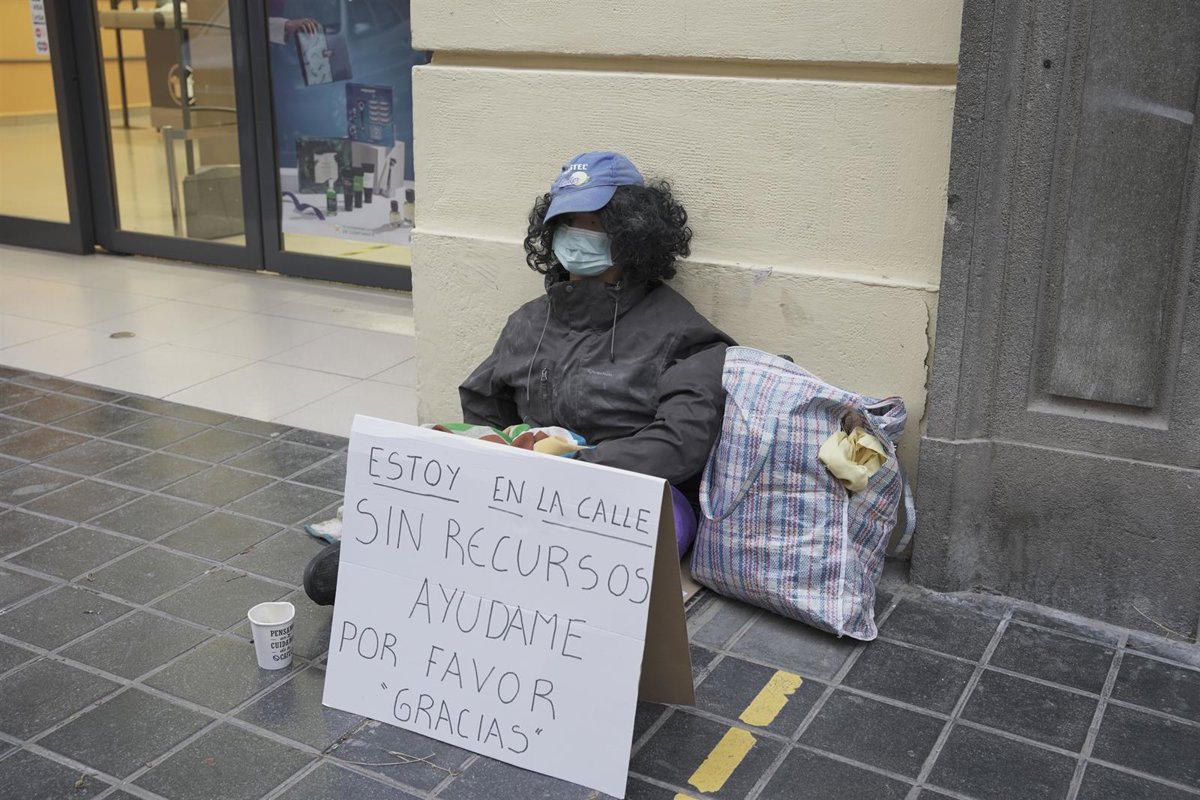 VISA
ESTOY EN LA CALLE
SIN RECURSOS
AYUDAME
POR FAVOR
"GRACIAS"
PENSAMOS
CUIDAMOS